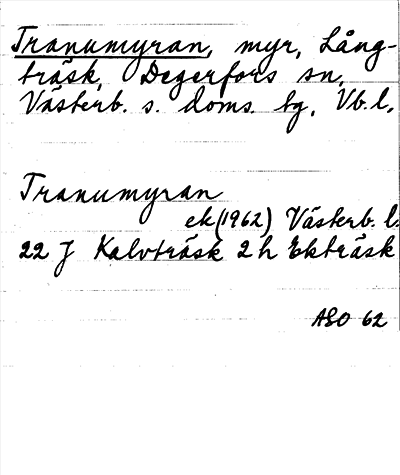 Tranumyran, myr, Lång-
träsk, Degerfors sn,
Västerb. s. doms. tg, Vb. l.
Tranumyran
ek (1962) Västerb. l.
22 J Kalvträsk 2 h Ekträsk
ASO 62